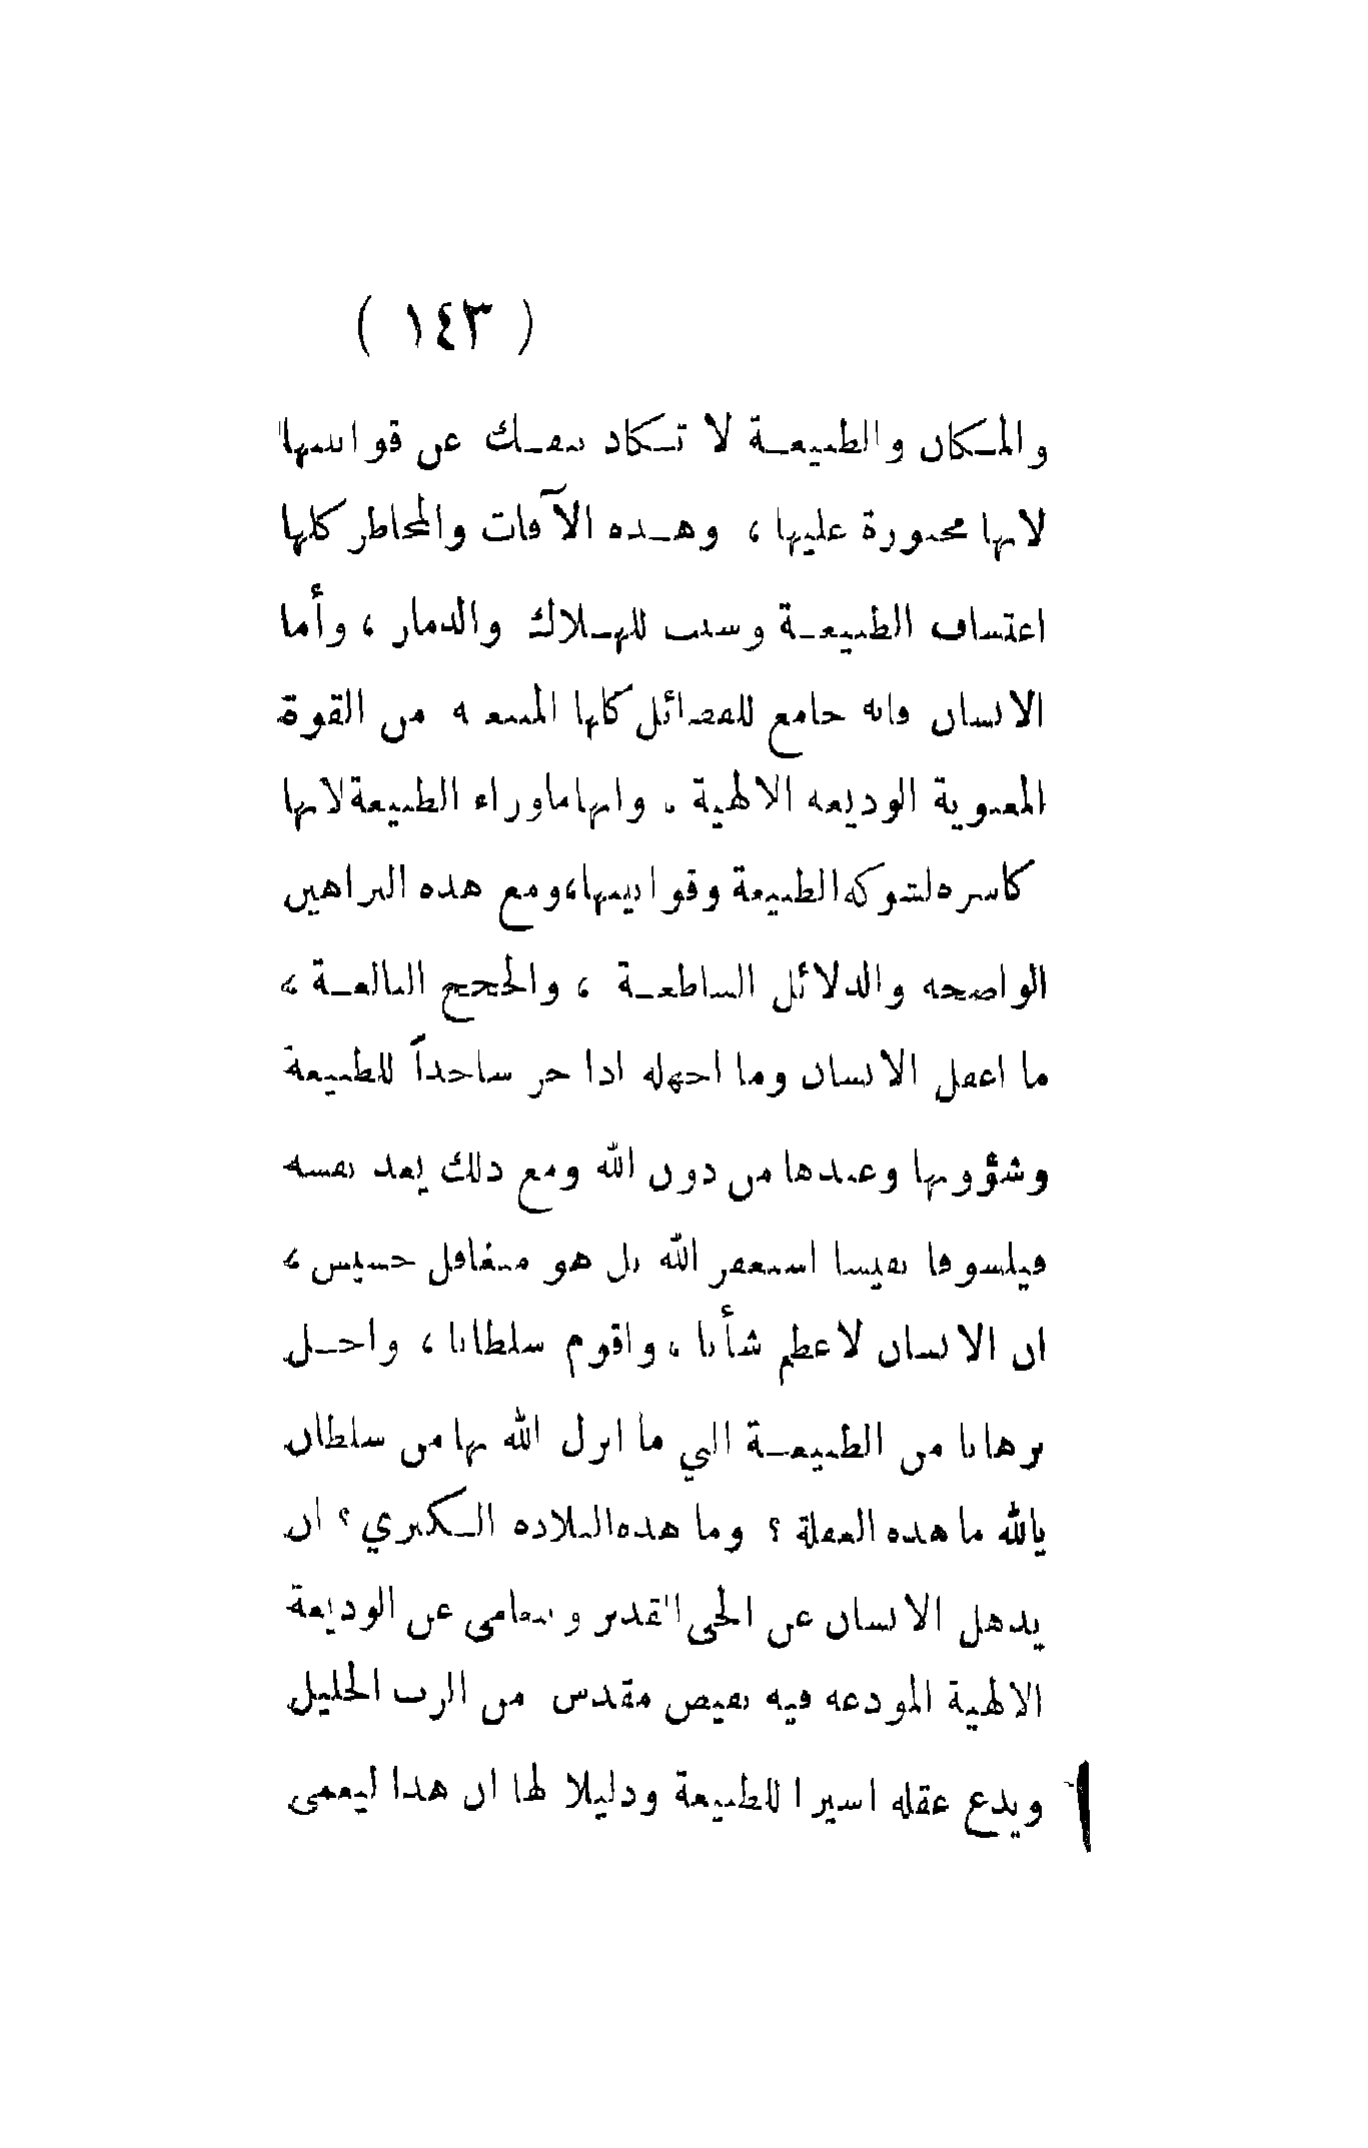 ( ١٤٣ )
والمكان والطبيعة لا تكاد تنفك عن قوانينها
لانها مجبورة عليها ، وهذه الآفات والمخاطر كلها
اعتساف الطبيعة وسبب للهلاك والدمار ، وأما
الانسان فانه جامع للفضائل كلها المنبعثة من القوة
المعنوية الوديعة الالهية . وانها ماوراء الطبيعة لانها
كاسرة لشوكة الطبيعة وقوانينها ، ومع هذه البراهين
الواضحة والدلائل الساطعة ، والحجج البالغة ،
ما اغفل الانسان وما اجهله اذا خر ساجداً للطبيعة
وشؤونها وعبدها من دون الله ومع ذلك يعد نفسه
فيلسوفا نفيسا استغفر الله بل هو متغافل خسيس ،
ان الانسان لاعظم شأنا ، واقوم سلطانا ، واجل
برهانا من الطبيعة التي ما انزل الله بها من سلطان
يالله ما هذه الغفلة ؟ وما هذه البلادة الكبري ؟ ان
يذهل الانسان عن الحى القدير ويتعامى عن الوديعة
الالهية المودعة فيه بفيض مقدس من الرب الجليل
ويدع عقله اسيرا للطبيعة ودليلا لها ان هذا ليعمى